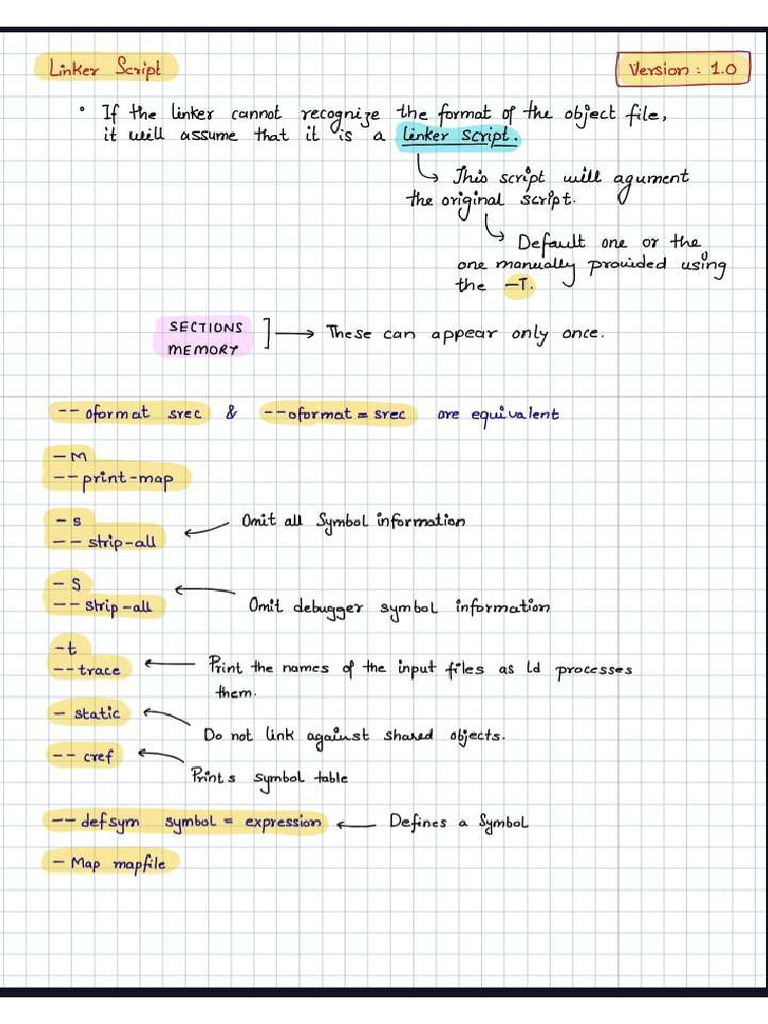 Linker Script
Version : 1.0
• If the linker cannot recognize the format of the object file,
it will assume that it is a linker script.
This script will agument
the original script.
Default one or the
one manually provided using
the -T.
SECTIONS
MEMORY
These can appear only once.
-- oformat srec & --oformat = srec are equivalent
- M
-- print-map
- s
-- strip-all
Omit all Symbol information
- S
-- strip-all
Omit debugger symbol information
-t
--trace
Print the names of the input files as ld processes
them.
- static
Do not link against shared objects.
-- cref
Prints symbol table
-- defsym symbol = expression
Defines a Symbol
- Map mapfile